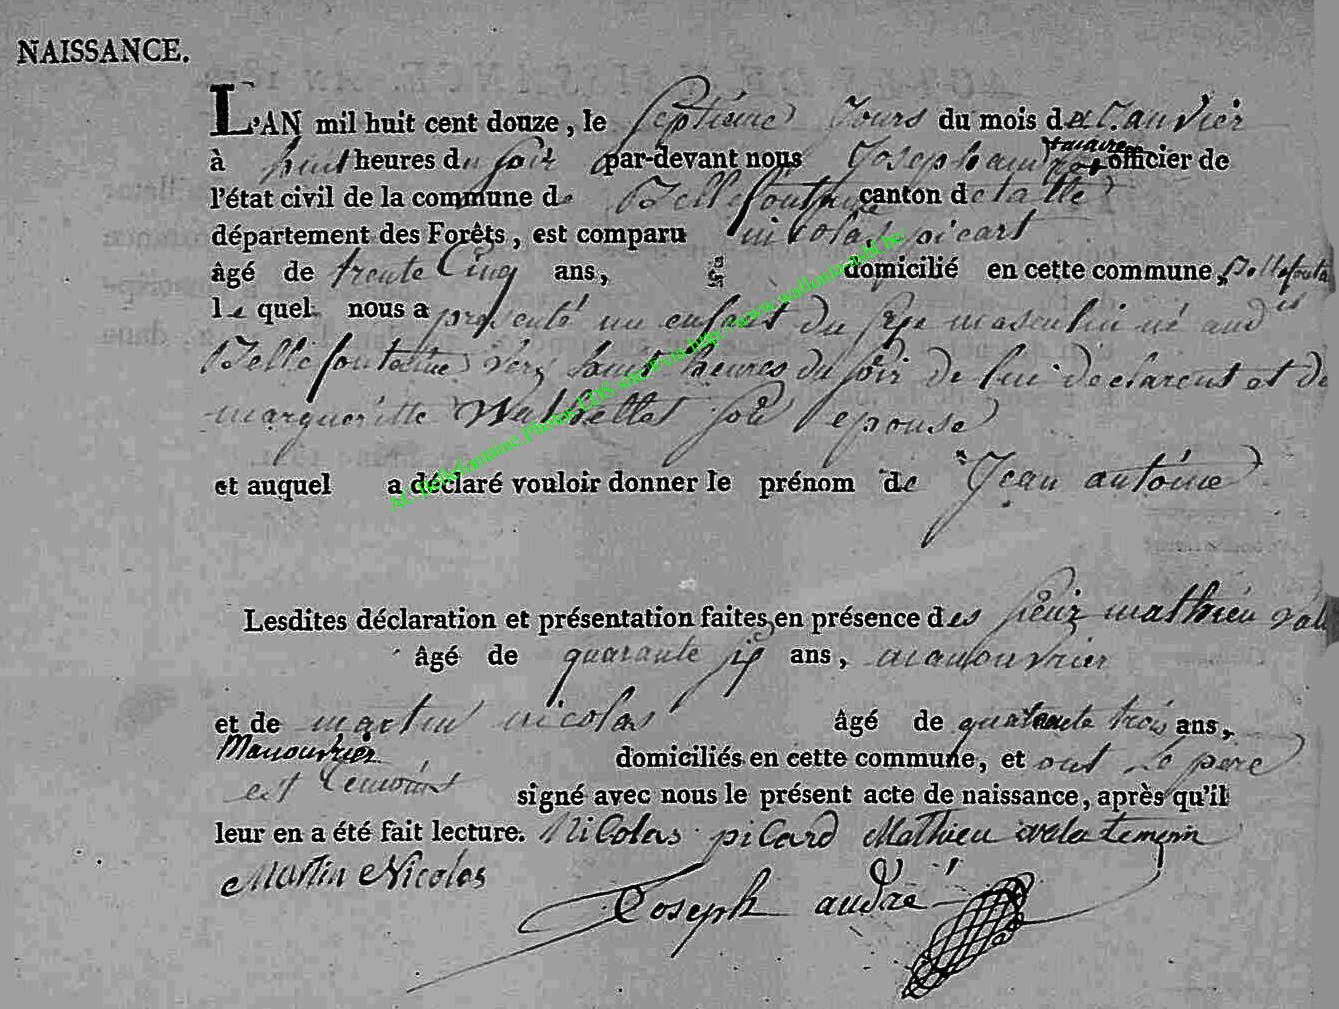 NAISSANCE.
L'AN mil huit cent douze, le septiéme Jours du mois de Janvier
à huit heures du soir par-devant nous Joseph andre maire officier de
l'état civil de la commune de Bellefontaine canton detalle
département des Forêts, est comparu nicolas picart
âgé de trente Cinq ans, domicilié en cette commune, Bellefonta
le quel nous a presenté un enfant du sexe masculin né aud is
Bellefontaine vers heures du soir de lui declarent et de
margueritte son epouse
et auquel a déclaré vouloir donner le prénom de Jean antoine
Lesdites déclaration et présentation faites en présence des mathieu
âgé de quarante six ans, manouvrier
et de martin nicolas âgé de quarante trois ans,
Manouvrier domiciliés en cette commune, et ont le pere
est temoins signé avec nous le présent acte de naissance, après qu'il
leur en a été fait lecture. Nicolas picard Mathieu temoin
Martin Nicolas Joseph andré
AC Bellefontaine Photos LDS via http://www.wallonia-asbl.be/